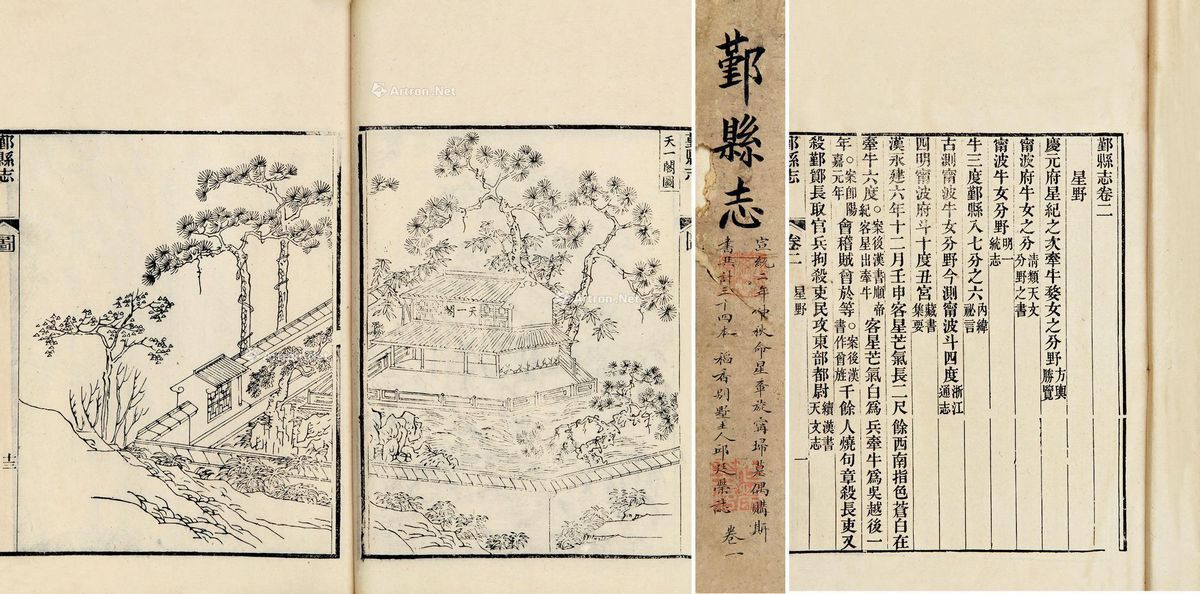 鄞縣志卷二
星野
慶元府星紀之次牽牛婺女之分野方輿勝覽
甯波府牛女之分清類天文分野之書
甯波牛女分野明一統志
牛三度鄞縣入七分之六內緯祕言
古測甯波牛女分野今測甯波斗四度浙江通志
四明甯波府斗十度丑宮藏書集要
漢永建六年十二月壬申客星芒氣長二尺餘西南指色蒼白在
牽牛六度○案後漢書順帝紀客星出牽牛客星芒氣白爲兵牽牛爲吳越後一
年○案卽陽嘉元年會稽賊曾於等○案後漢書作曾旌千餘人燒句章殺長吏又
殺鄞鄮長取官兵拘殺吏民攻東部都尉續漢書天文志
鄞縣志
卷二
星野
一
鄞縣志
宣統二年 秋命星華旋甯埽墓偶購斯
書共計三十四本 稲香別墅主人邱 志
卷一
天一閣圖
天一閣
鄞縣志
圖
鄞縣志
圖
十三
Artron.Net
Artron.Net